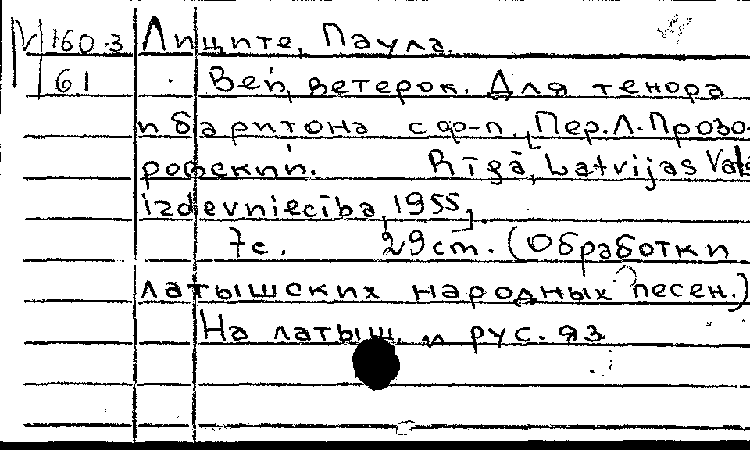 М 160-3 Лиците, Паула.
61 Вей, ветерок. Для тенора
и баритона с ф-п. [Пер. Л. Прозо-
ровский. Rīgā, Latvijas Vals
izdevniecība, 1955].
7с. 29 cm. (Обработки
латышских народных песен.)
На латыш. и рус. яз